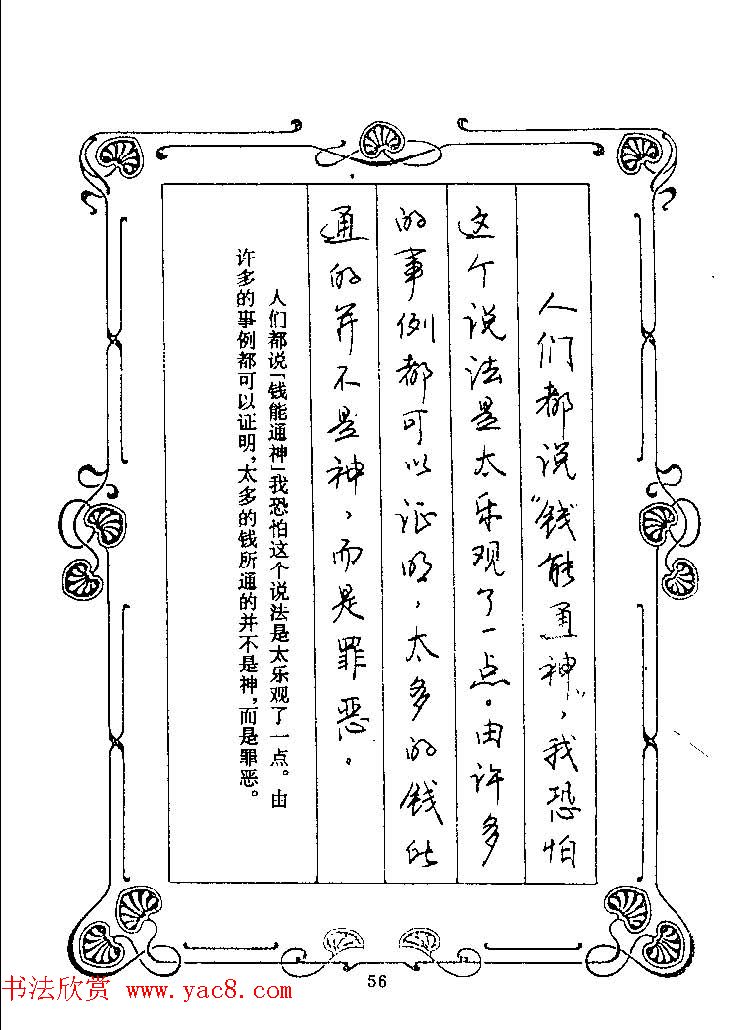 人们都说“钱能通神”，我恐怕
这个说法是太乐观了一点。由许多
的事例都可以证明，太多的钱所
通的并不是神，而是罪恶。
人们都说「钱能通神」我恐怕这个说法是太乐观了一点。由
许多的事例都可以证明，太多的钱所通的并不是神，而是罪恶。
56
书法欣赏 www.yac8.com